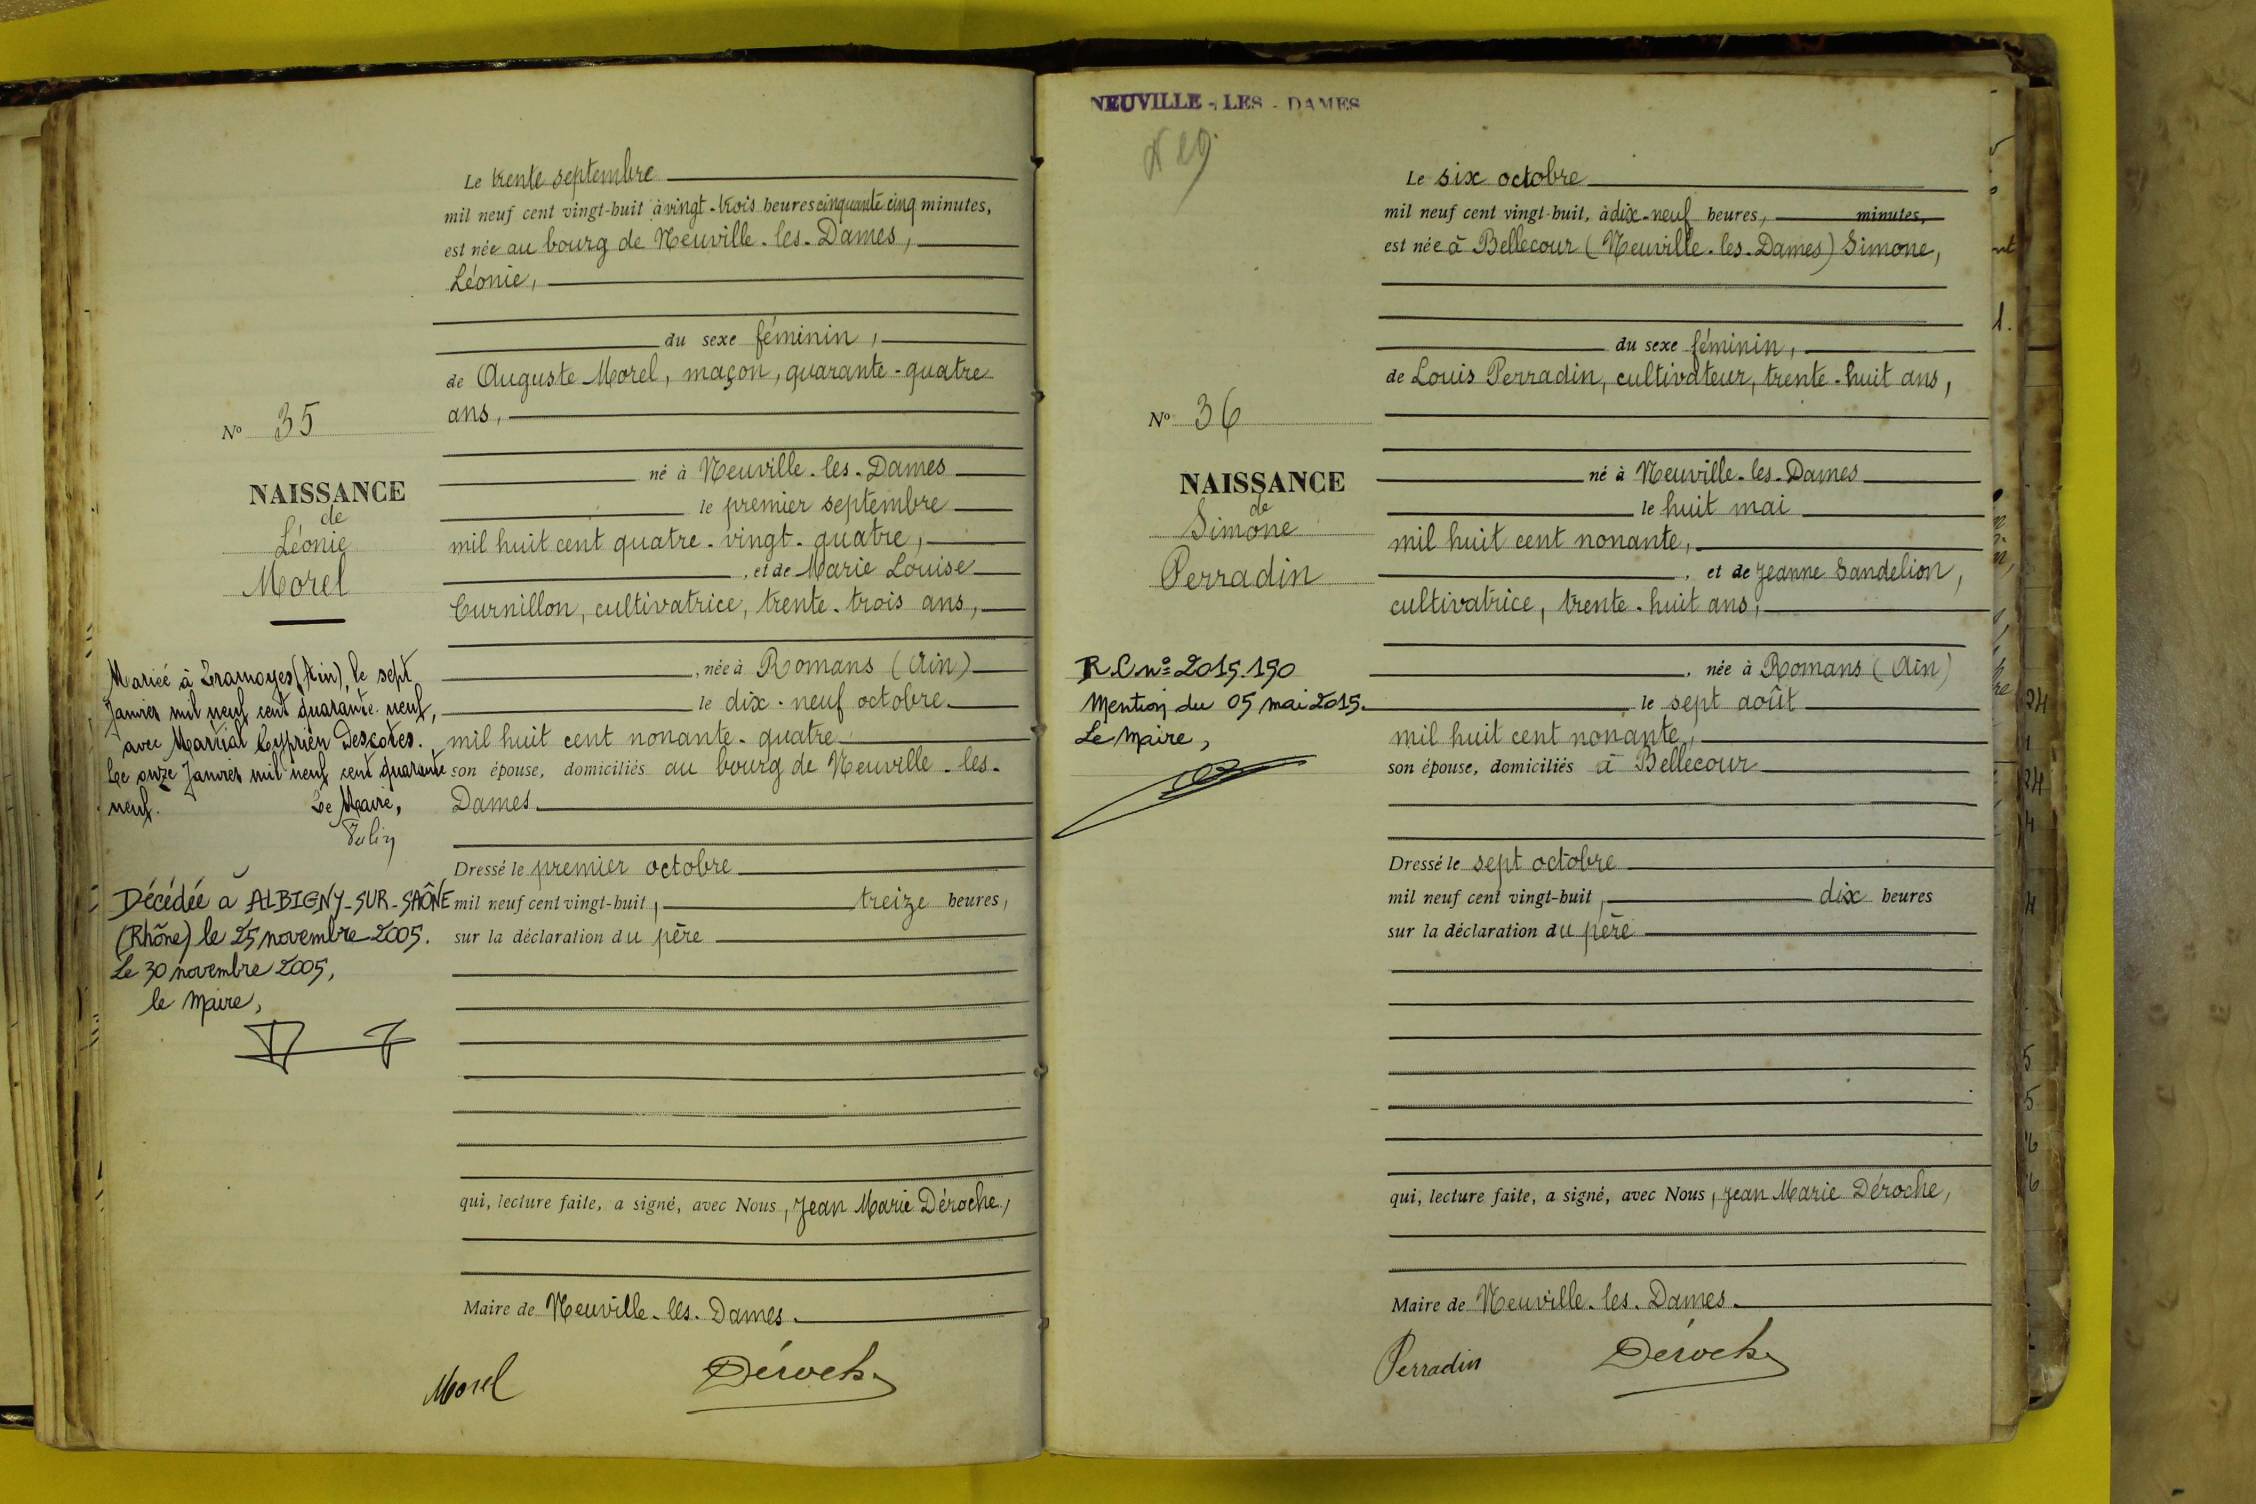 Le trente septembre
mil neuf cent vingt-huit à vingt-trois heures cinquante cinq minutes,
est née au bourg de Neuville-les-Dames,
Léonie,
du sexe féminin,
de Auguste Morel, maçon, quarante-quatre
ans,
N° 35
né à Neuville-les-Dames
NAISSANCE
le premier septembre
de
Léonie
mil huit cent quatre-vingt-quatre,
Morel
, et de Marie Louise
Curnillon, cultivatrice, trente-trois ans,
, née à Romans (Ain)
le dix-neuf octobre
mil huit cent nonante-quatre
son épouse, domiciliés au bourg de Neuville-les-
Dames
Mariée à Tramoyes (Ain), le sept
Janvier mil neuf cent quarante neuf,
avec Martial Cyprien Descotes.
Le onze Janvier mil neuf cent quarante
neuf. Le Maire,
Dressé le premier octobre
mil neuf cent vingt-huit, treize heures,
sur la déclaration du père
Décédée à ALBIGNY-SUR-SAÔNE
(Rhône) le 25 novembre 2005.
Le 30 novembre 2005,
le Maire,
qui, lecture faite, a signé, avec Nous, Jean Marie Déroche,
Maire de Neuville-les-Dames.
Morel Déroche
NEUVILLE-LES-DAMES
Le six octobre
mil neuf cent vingt-huit, à dix-neuf heures, minutes,
est née à Bellecour (Neuville-les-Dames) Simone,
du sexe féminin,
de Louis Perradin, cultivateur, trente-huit ans,
N° 36
né à Neuville-les-Dames
NAISSANCE
le huit mai
de
Simone
mil huit cent nonante,
Perradin
, et de Jeanne Sandelion,
cultivatrice, trente-huit ans,
, née à Romans (Ain)
le sept août
mil huit cent nonante,
son épouse, domiciliés à Bellecour
R.C n° 2015.150
Mention du 05 mai 2015.
Le Maire,
Dressé le sept octobre
mil neuf cent vingt-huit, dix heures
sur la déclaration du père
qui, lecture faite, a signé, avec Nous, Jean Marie Déroche,
Maire de Neuville-les-Dames.
Perradin Déroche